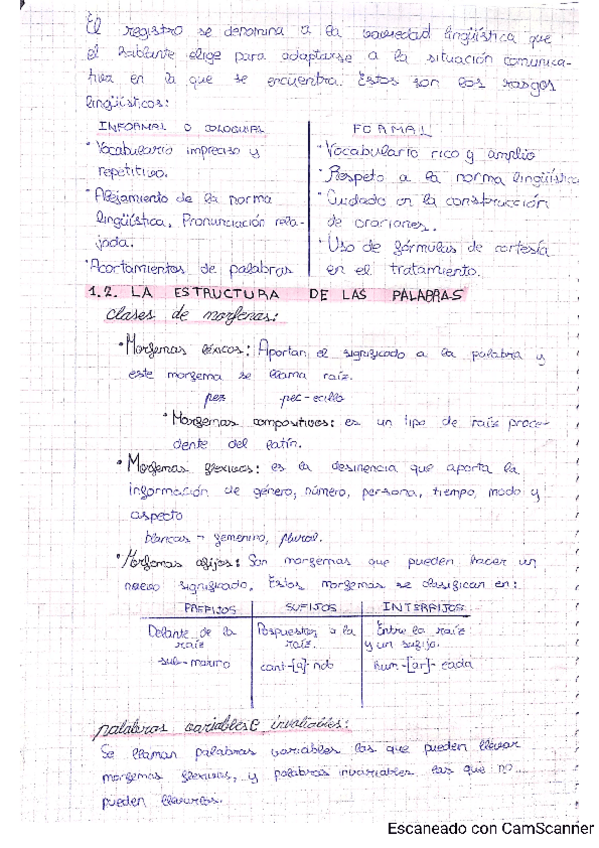 El registro se denomina a la variedad lingüística que
el hablante elige para adaptarse a la situación comunica-
tiva en la que se encuentra. Estos son los rasgos
lingüísticos:
INFORMAL O COLOQUIAL
· Vocabulario impreciso y
repetitivo.
· Alejamiento de la norma
lingüística, Pronunciación rela-
jada.
· Acortamientos de palabras
FORMAL
· Vocabulario rico y amplio
· Respeto a la norma lingüística
· Cuidado en la construcción
de oraciones.
· Uso de fórmulas de cortesía
en el tratamiento.
1.2. LA ESTRUCTURA DE LAS PALABRAS
clases de morfemas:
· Morfemas léxicos: Aportan el significado a la palabra y
este morfema se llama raíz.
pez pec-ecillo
· Morfemas compositivos: es un tipo de raíz proce-
dente del latín.
· Morfemas flexivos: es la desinencia que aporta la
información de género, número, persona, tiempo, modo y
aspecto
blancas - femenino, plural.
· Morfemas afijos: Son morfemas que pueden hacer un
nuevo significado. Estos morfemas se clasifican en:
PREFIJOS SUFIJOS INTERFIJOS
Delante de la
raíz
sub-marino
Despuestos a la
raíz.
cant-[a]-ndo
Entre la raíz
y un sufijo.
hum-[ar]-eada
palabras variables e invariables:
Se llaman palabras variables las que pueden llevar
morfemas flexivos, y palabras invariables las que no
pueden llevarlos.
Escaneado con CamScanner